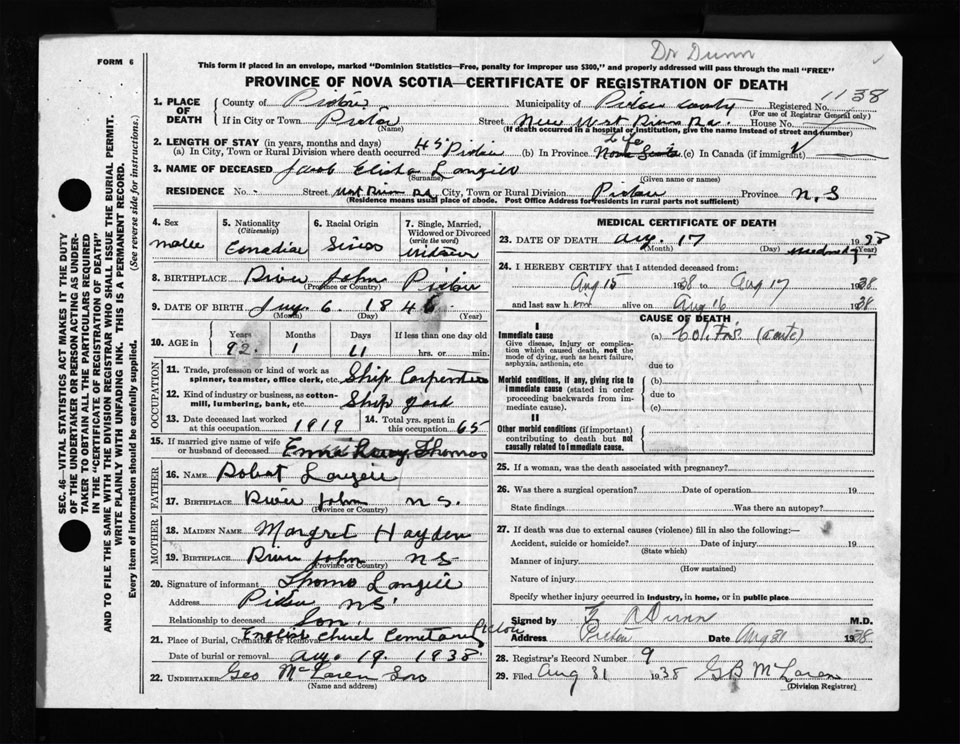 Dr Dunn
FORM 6
This form if placed in an envelope, marked "Dominion Statistics—Free, penalty for improper use $300," and properly addressed will pass through the mail "FREE"
PROVINCE OF NOVA SCOTIA—CERTIFICATE OF REGISTRATION OF DEATH
1138
1. PLACE OF DEATH
County of Pictou Municipality of Pictou County Registered No.
(For use of Registrar General only)
If in City or Town Pictou (Name) Street New West River Rd. House No.
(If death occurred in a hospital or institution, give the name instead of street and number)
2. LENGTH OF STAY (in years, months and days)
Life
(a) In City, Town or Rural Division where death occurred 45 Pictou (b) In Province Nova Scotia (c) In Canada (if immigrant)
3. NAME OF DECEASED Jacob Elisha Langill
(Surname) (Given name or names)
RESIDENCE No. - Street West River Rd City, Town or Rural Division Pictou Province N.S
(Residence means usual place of abode. Post Office Address for residents in rural parts not sufficient)
4. Sex
Malle
5. Nationality (Citizenship)
Canadian
6. Racial Origin
Swiss
7. Single, Married, Widowed or Divorced (write the word)
Widower
8. BIRTHPLACE River John Pictou
(Province or Country)
9. DATE OF BIRTH July 6. 1846
(Month) (Day) (Year)
10. AGE in
Years Months Days If less than one day old
92. 1 11 hrs. or min.
OCCUPATION
11. Trade, profession or kind of work as spinner, teamster, office clerk, etc. Ship Carpenter
12. Kind of industry or business, as cotton-mill, lumbering, bank, etc. Ship yard
13. Date deceased last worked at this occupation 1919
14. Total yrs. spent in this occupation 65
15. If married give name of wife or husband of deceased Thomas
FATHER
16. NAME Robert Langill
17. BIRTHPLACE River John N.S.
(Province or Country)
MOTHER
18. MAIDEN NAME Margret Hayden
19. BIRTHPLACE River John NS
(Province or Country)
20. Signature of informant Thomas Langill
Address Pictou NS
Relationship to deceased Son
21. Place of Burial, Cremation or Removal English Church Cemetary Pictou
Date of burial or removal Aug. 19. 1938
22. UNDERTAKER Geo McLaren Sons
(Name and address)
MEDICAL CERTIFICATE OF DEATH
23. DATE OF DEATH Aug. 17 1938
(Month) (Day)
24. I HEREBY CERTIFY that I attended deceased from:
Aug 15 1938 to Aug 17 1938
and last saw him alive on Aug 16 1938
CAUSE OF DEATH
I
Immediate cause
Give disease, injury or complication which caused death, not the mode of dying, such as heart failure, asphyxia, asthenia, etc
(a) Colitis (acute)
due to
Morbid conditions, if any, giving rise to immediate cause (stated in order proceeding backwards from immediate cause).
(b)
due to
(c)
II
Other morbid conditions (if important) contributing to death but not causally related to immediate cause.
25. If a woman, was the death associated with pregnancy?
26. Was there a surgical operation? Date of operation 19
State findings Was there an autopsy?
27. If death was due to external causes (violence) fill in also the following:—
Accident, suicide or homicide? Date of injury 19
(State which)
Manner of injury
(How sustained)
Nature of injury
Specify whether injury occurred in industry, in home, or in public place
Signed by Dunn M.D.
Address Pictou Date Aug 31 1938
28. Registrar's Record Number 9
29. Filed Aug 31 1938 GB McLaren
(Division Registrar)
SEC. 46—VITAL STATISTICS ACT MAKES IT THE DUTY
OF THE UNDERTAKER OR PERSON ACTING AS UNDER-
TAKER TO OBTAIN ALL THE PARTICULARS REQUIRED
IN THE "CERTIFICATE OF REGISTRATION OF DEATH"
AND TO FILE THE SAME WITH THE DIVISION REGISTRAR WHO SHALL ISSUE THE BURIAL PERMIT.
WRITE PLAINLY WITH UNFADING INK. THIS IS A PERMANENT RECORD.
Every item of information should be carefully supplied. (See reverse side for instructions.)